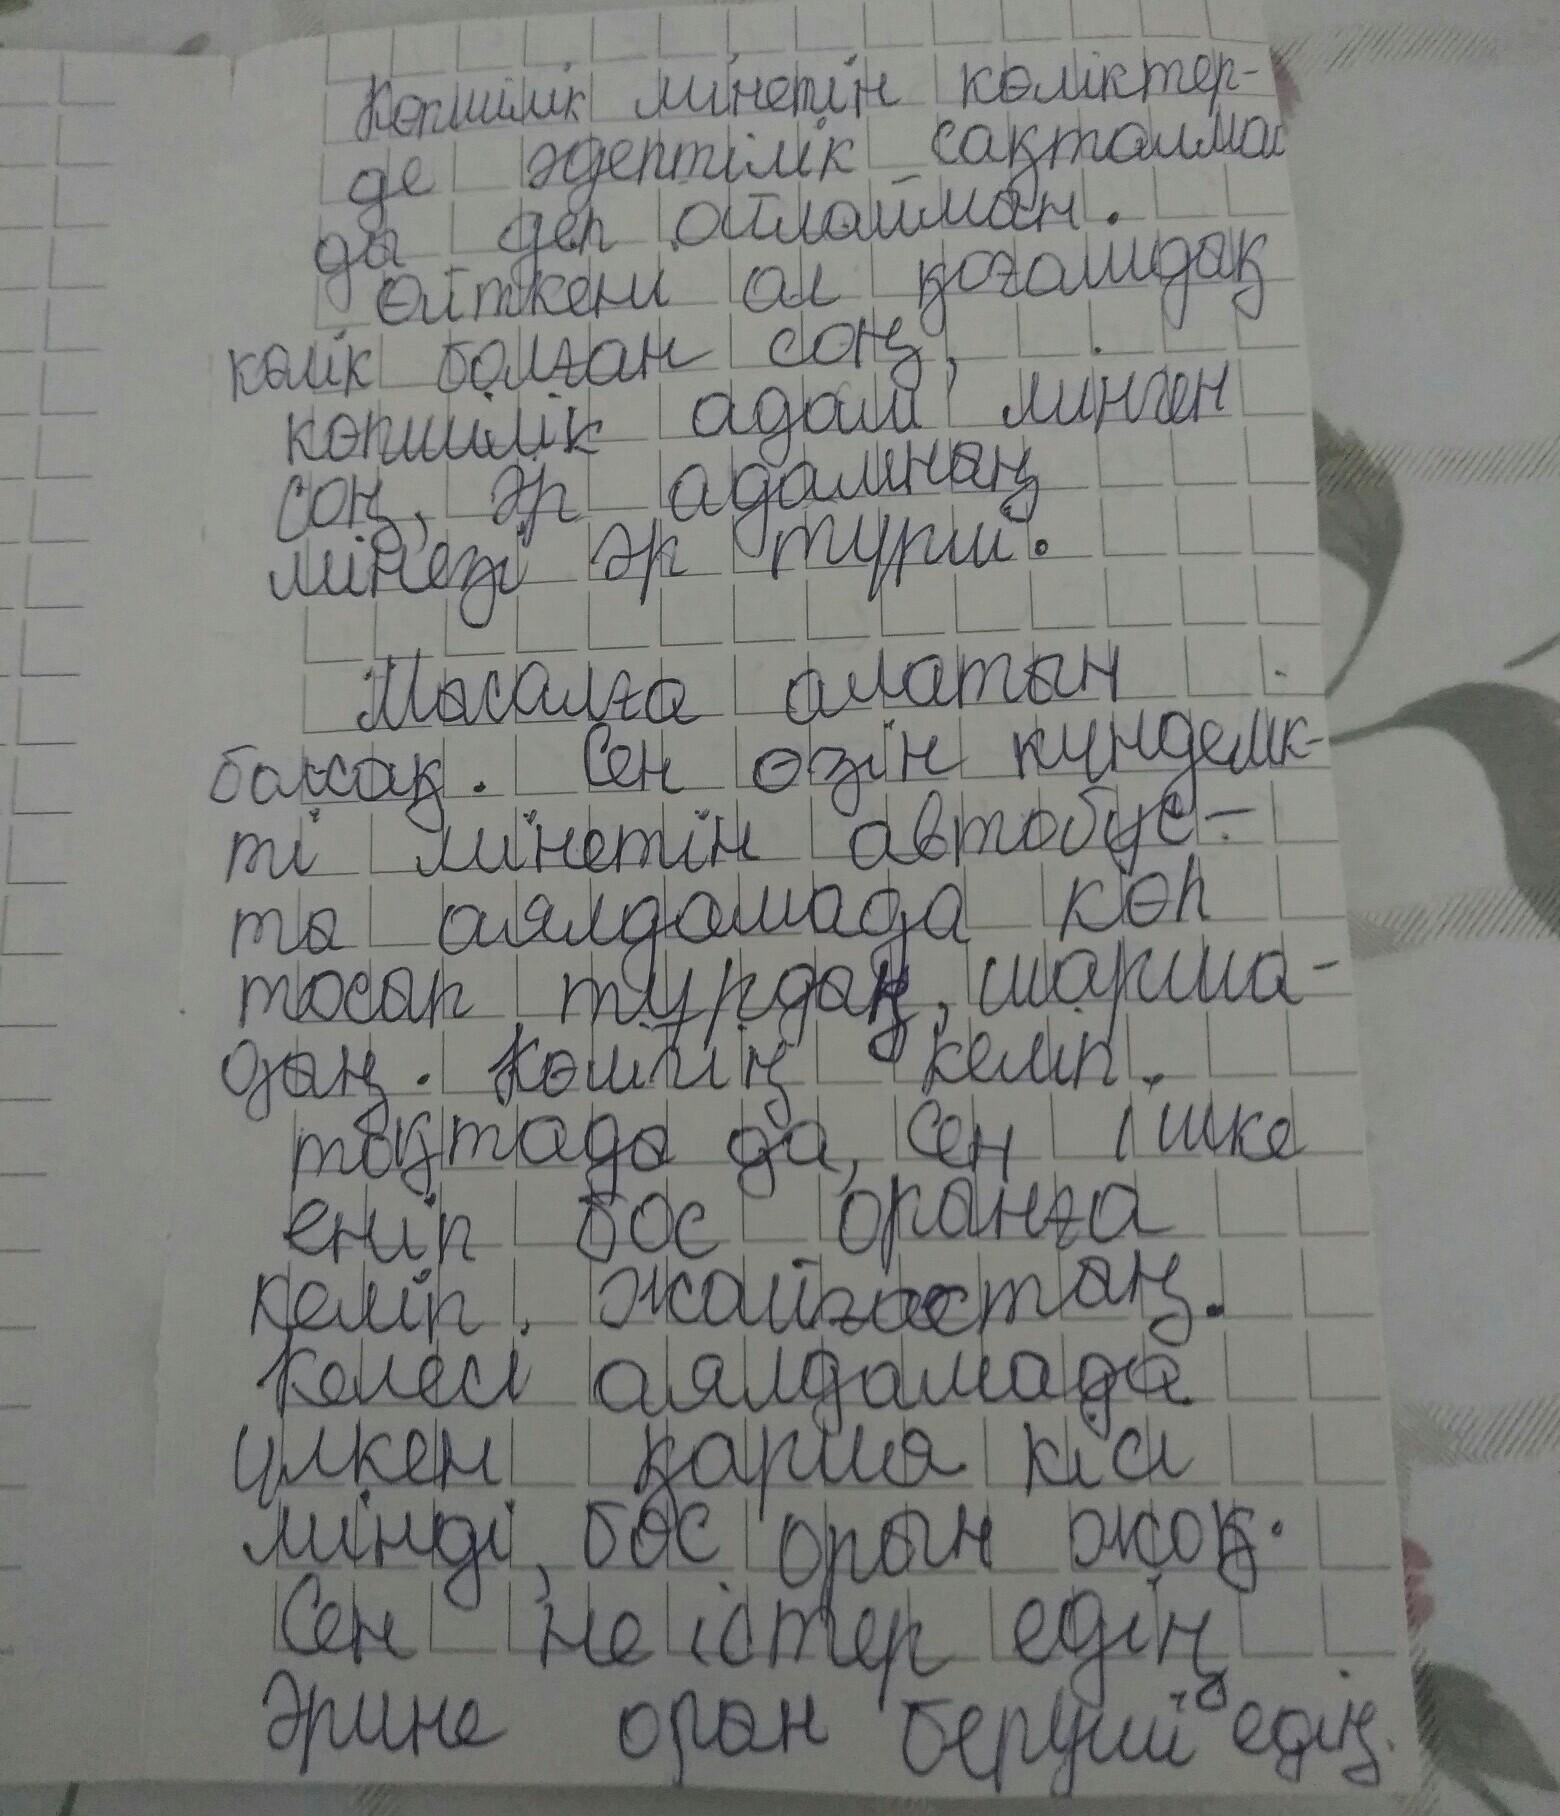 Көпшілік мінетін көліктер-
де әдептілік сақталмай
ды деп ойлаймын.
Өйткені ол қоғамдық
көлік болған соң,
көпшілік адам мінген
соң, әр адамның
мінезі әр түрлі.
Мысалға алатын
болсақ. Сен өзің күнделік-
ті мінетін автобус-
ты аялдамада көп
тосып тұрдың, шарша-
дың. Көлігің келіп,
тоқтады да, сен ішке
еніп бос орынға
келіп, жайғастың.
Келесі аялдамада
үлкен қария кісі
мінді, бос орын жоқ.
Сен не істер едің
Әрине орын беруші едің.